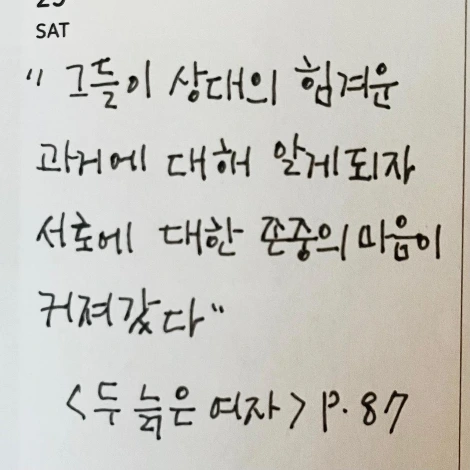 SAT
" 그들이 상대의 힘겨운
과거에 대해 알게되자
서로에 대한 존중의 마음이
커져갔다"
<두 늙은 여자> P.87